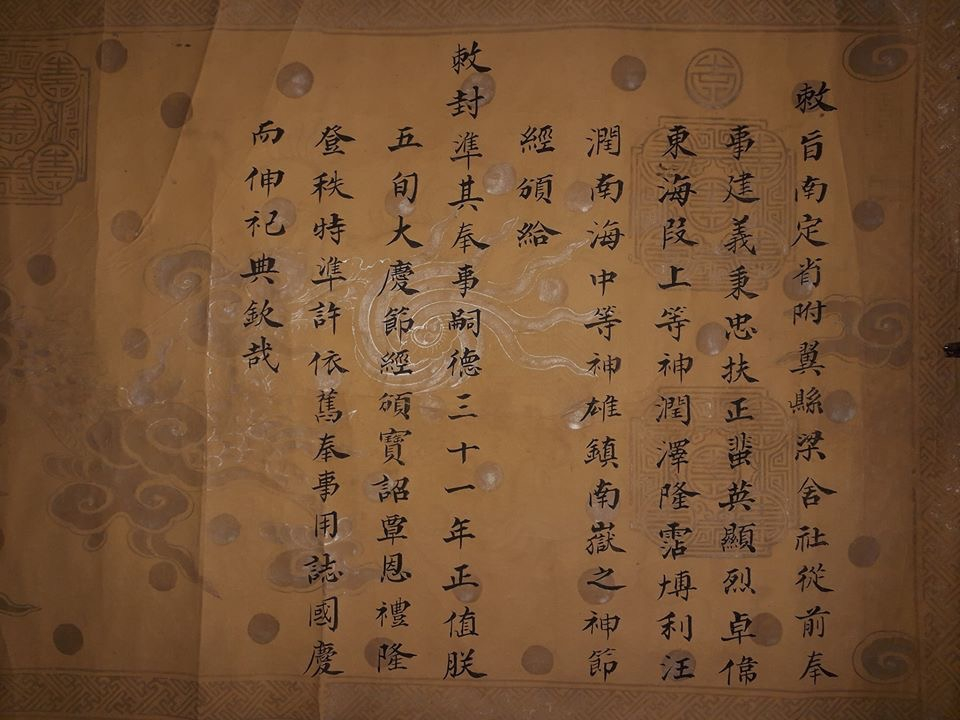 敕旨南定省附翼縣梁舍社從前奉
事建義秉忠扶正蜚英顯烈卓偉
東海段上等神潤澤隆霑博利汪
潤南海中等神雄鎮南嶽之神節
經頒給
敕封準其奉事嗣德三十一年正值朕
五旬大慶節經頒寶詔覃恩禮隆
登秩特準許依舊奉事用誌國慶
而伸祀典欽哉